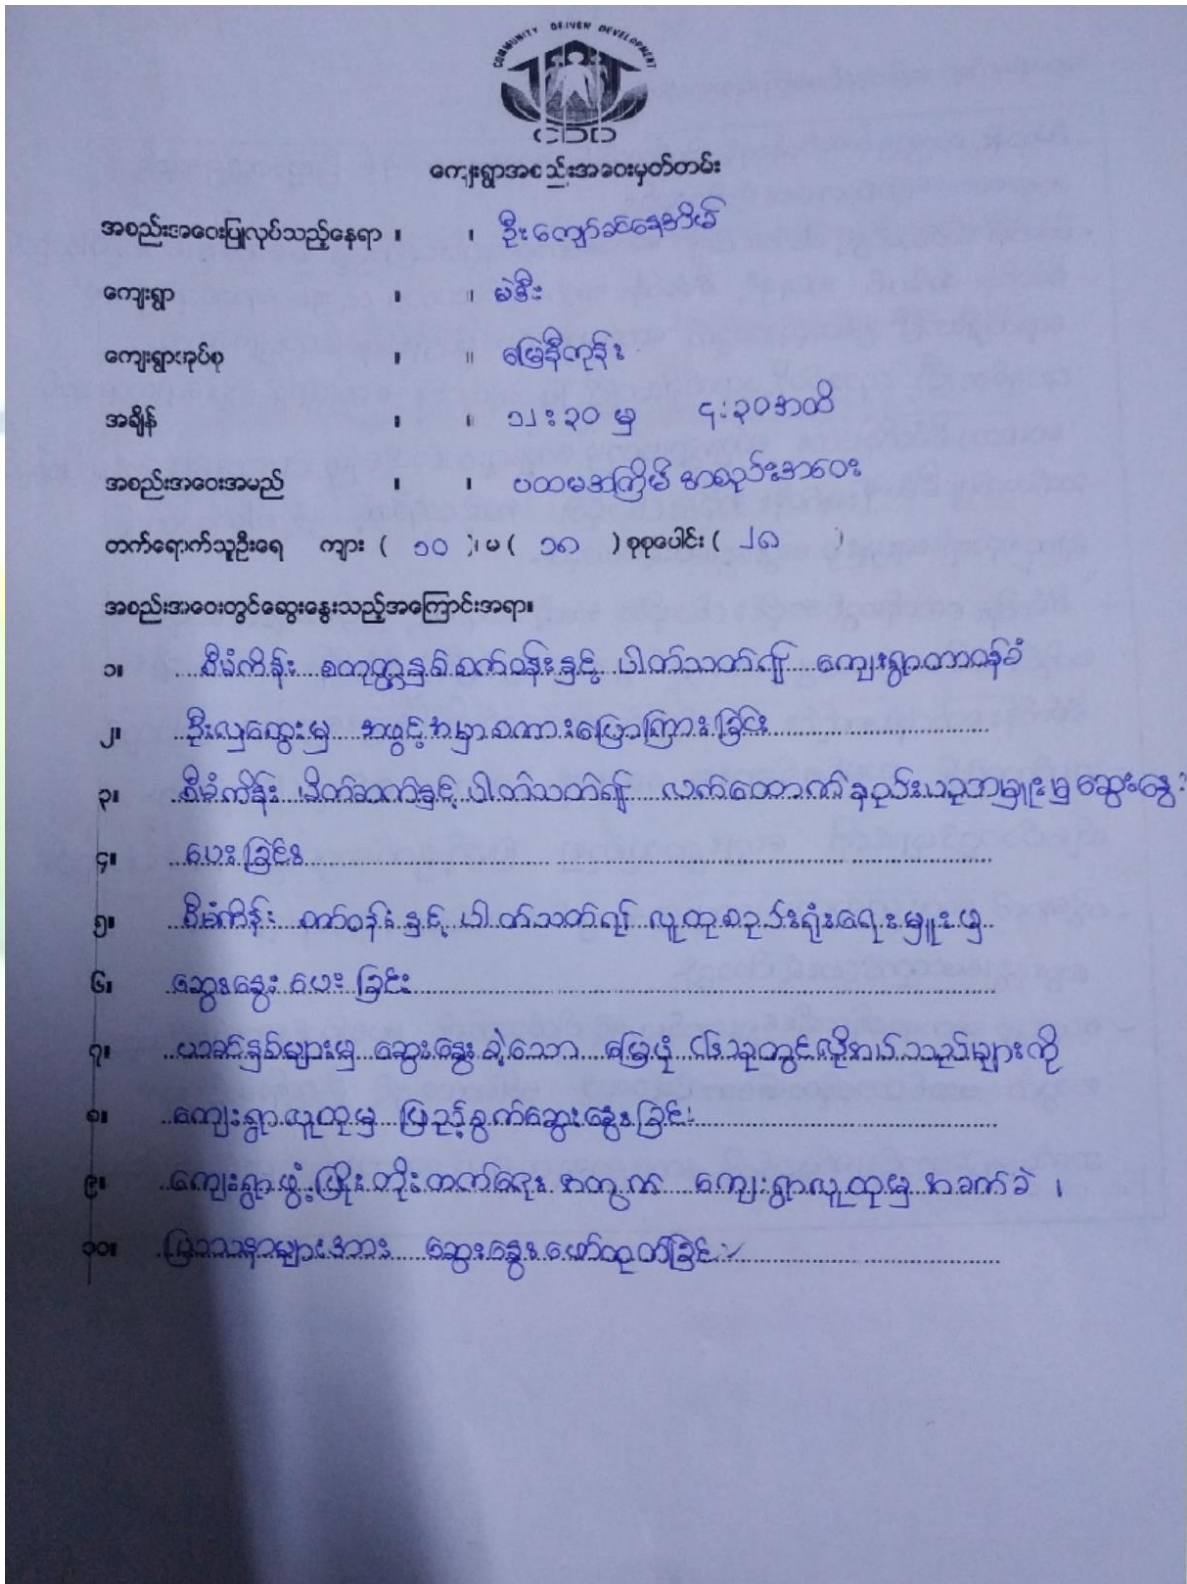 COMMUNITY DRIVEN DEVELOPMENT
CDD
ကျေးရွာအစည်းအဝေးမှတ်တမ်း
အစည်းအဝေးပြုလုပ်သည့်နေရာ ။ ။ ဦးကျော်ခင်နေအိမ်
ကျေးရွာ ။ ။ မဲဒီး
ကျေးရွာအုပ်စု ။ ။ မြေနီကုန်း
အချိန် ။ ။ ၁၂း၃၀ မှ ၄း၃၀အထိ
အစည်းအဝေးအမည် ။ ။ ပထမအကြိမ် အစည်းအဝေး
တက်ရောက်သူဦးရေ ကျား ( ၁၀ )၊ မ ( ၁၈ ) စုစုပေါင်း ( ၂၈ )
အစည်းအဝေးတွင်ဆွေးနွေးသည့်အကြောင်းအရာ။
၁။ စီမံကိန်း စတုတ္ထနှစ်စက်ဝန်းနှင့် ပါတ်သတ်၍ ကျေးရွာတာဝန်ခံ
၂။ ဦးလှထွေးမှ အဖွင့်အမှာစကားပြောကြားခြင်း
၃။ စီမံကိန်း မိတ်ဆက်နှင့် ပါတ်သတ်၍ လက်ထောက်နည်းပညာမှူးမှ ဆွေးနွေး
၄။ ပေးခြင်း
၅။ စီမံကိန်း စက်ဝန်းနှင့် ပါတ်သတ်၍ လူထုစည်းရုံးရေးမှူးမှ
၆။ ဆွေးနွေးပေးခြင်း
၇။ ယခင်နှစ်များမှ ဆွေးနွေးခဲ့သော မြေပုံ ၄ခုတွင်လိုအပ်သည်များကို
၈။ ကျေးရွာလူထုမှ ဖြည့်စွက်ဆွေးနွေးခြင်း
၉။ ကျေးရွာဖွံ့ဖြိုးတိုးတက်ရေးအတွက် ကျေးရွာလူထုမှ အခက်ခဲ ၊
၁၀။ ပြဿနာများအား ဆွေးနွေးဖော်ထုတ်ခြင်း